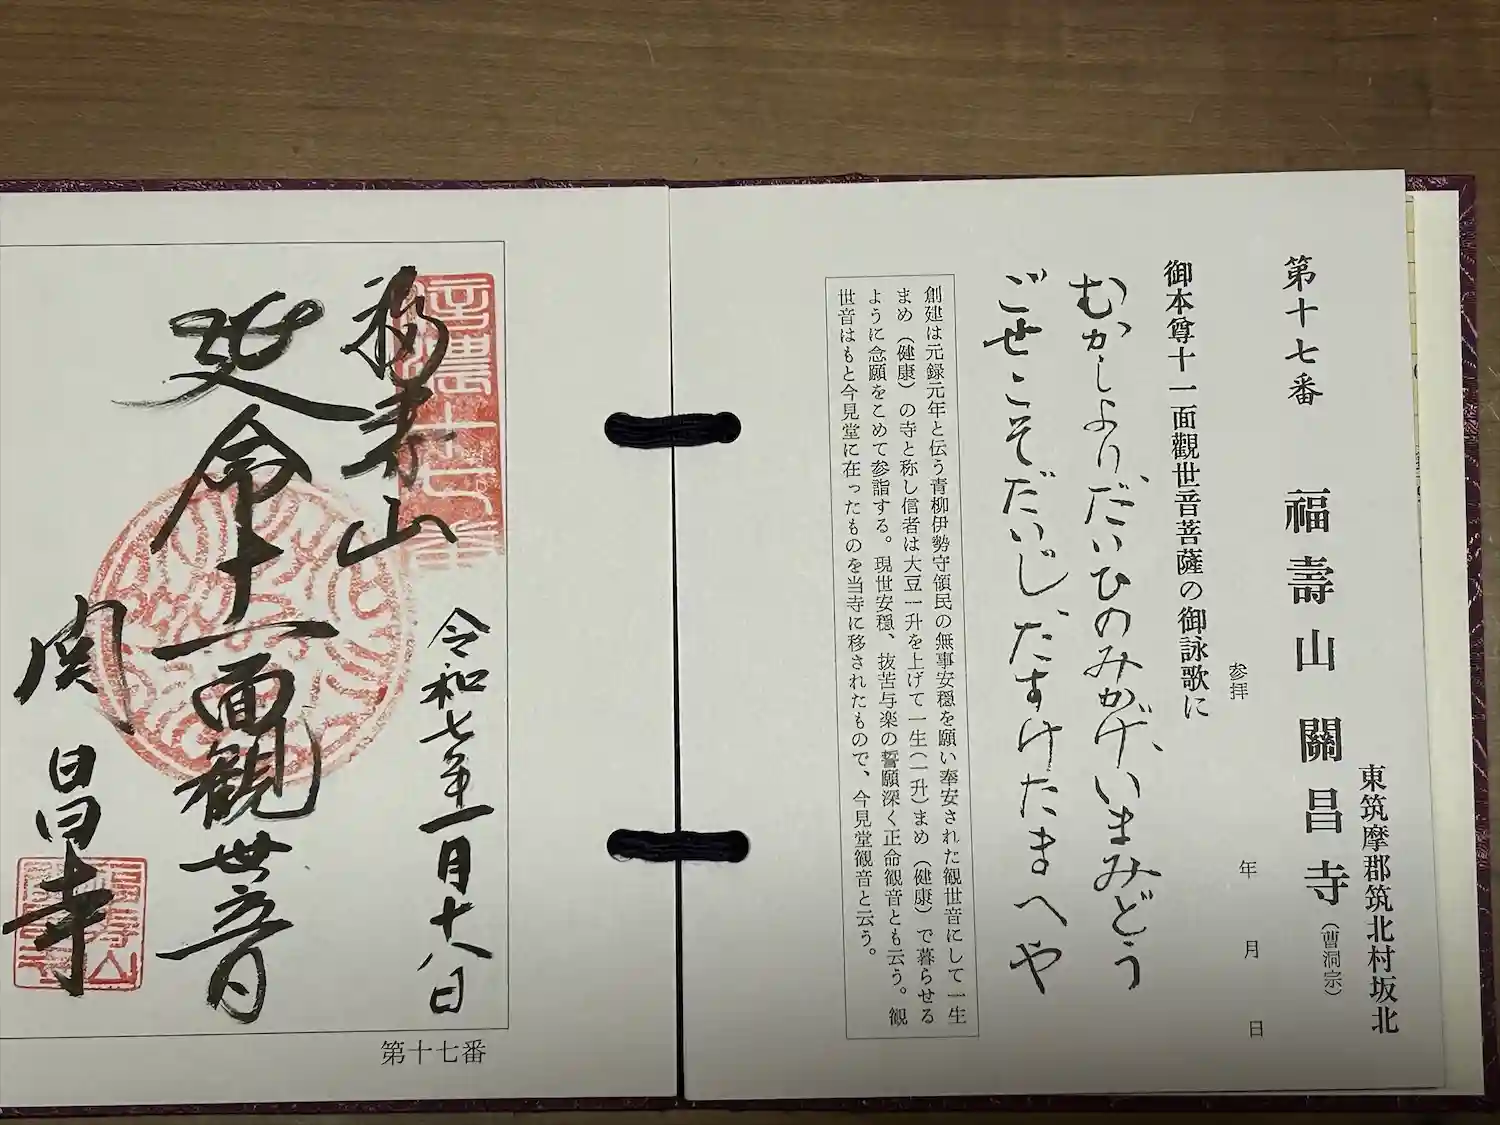 東筑摩郡筑北村坂北
第十七番 福壽山 關昌寺(曹洞宗)
参拝 年 月 日
御本尊十一面觀世音菩薩の御詠歌に
むかしより、だいひのみかげ、いまみどう
ごせこそだいじ、たすけたまへや
創建は元録元年と伝う青柳伊勢守領民の無事安穏を願い奉安された観世音にして一生
まめ(健康)の寺と称し信者は大豆一升を上げて一生(一升)まめ(健康)で暮らせる
ように念願をこめて参詣する。現世安穏、抜苦与楽の誓願深く正命観音とも云う。観
世音はもと今見堂に在ったものを当寺に移されたもので、今見堂観音と云う。
福寿山
令和七年一月十八日
延命十一面観世音
関昌寺
第十七番